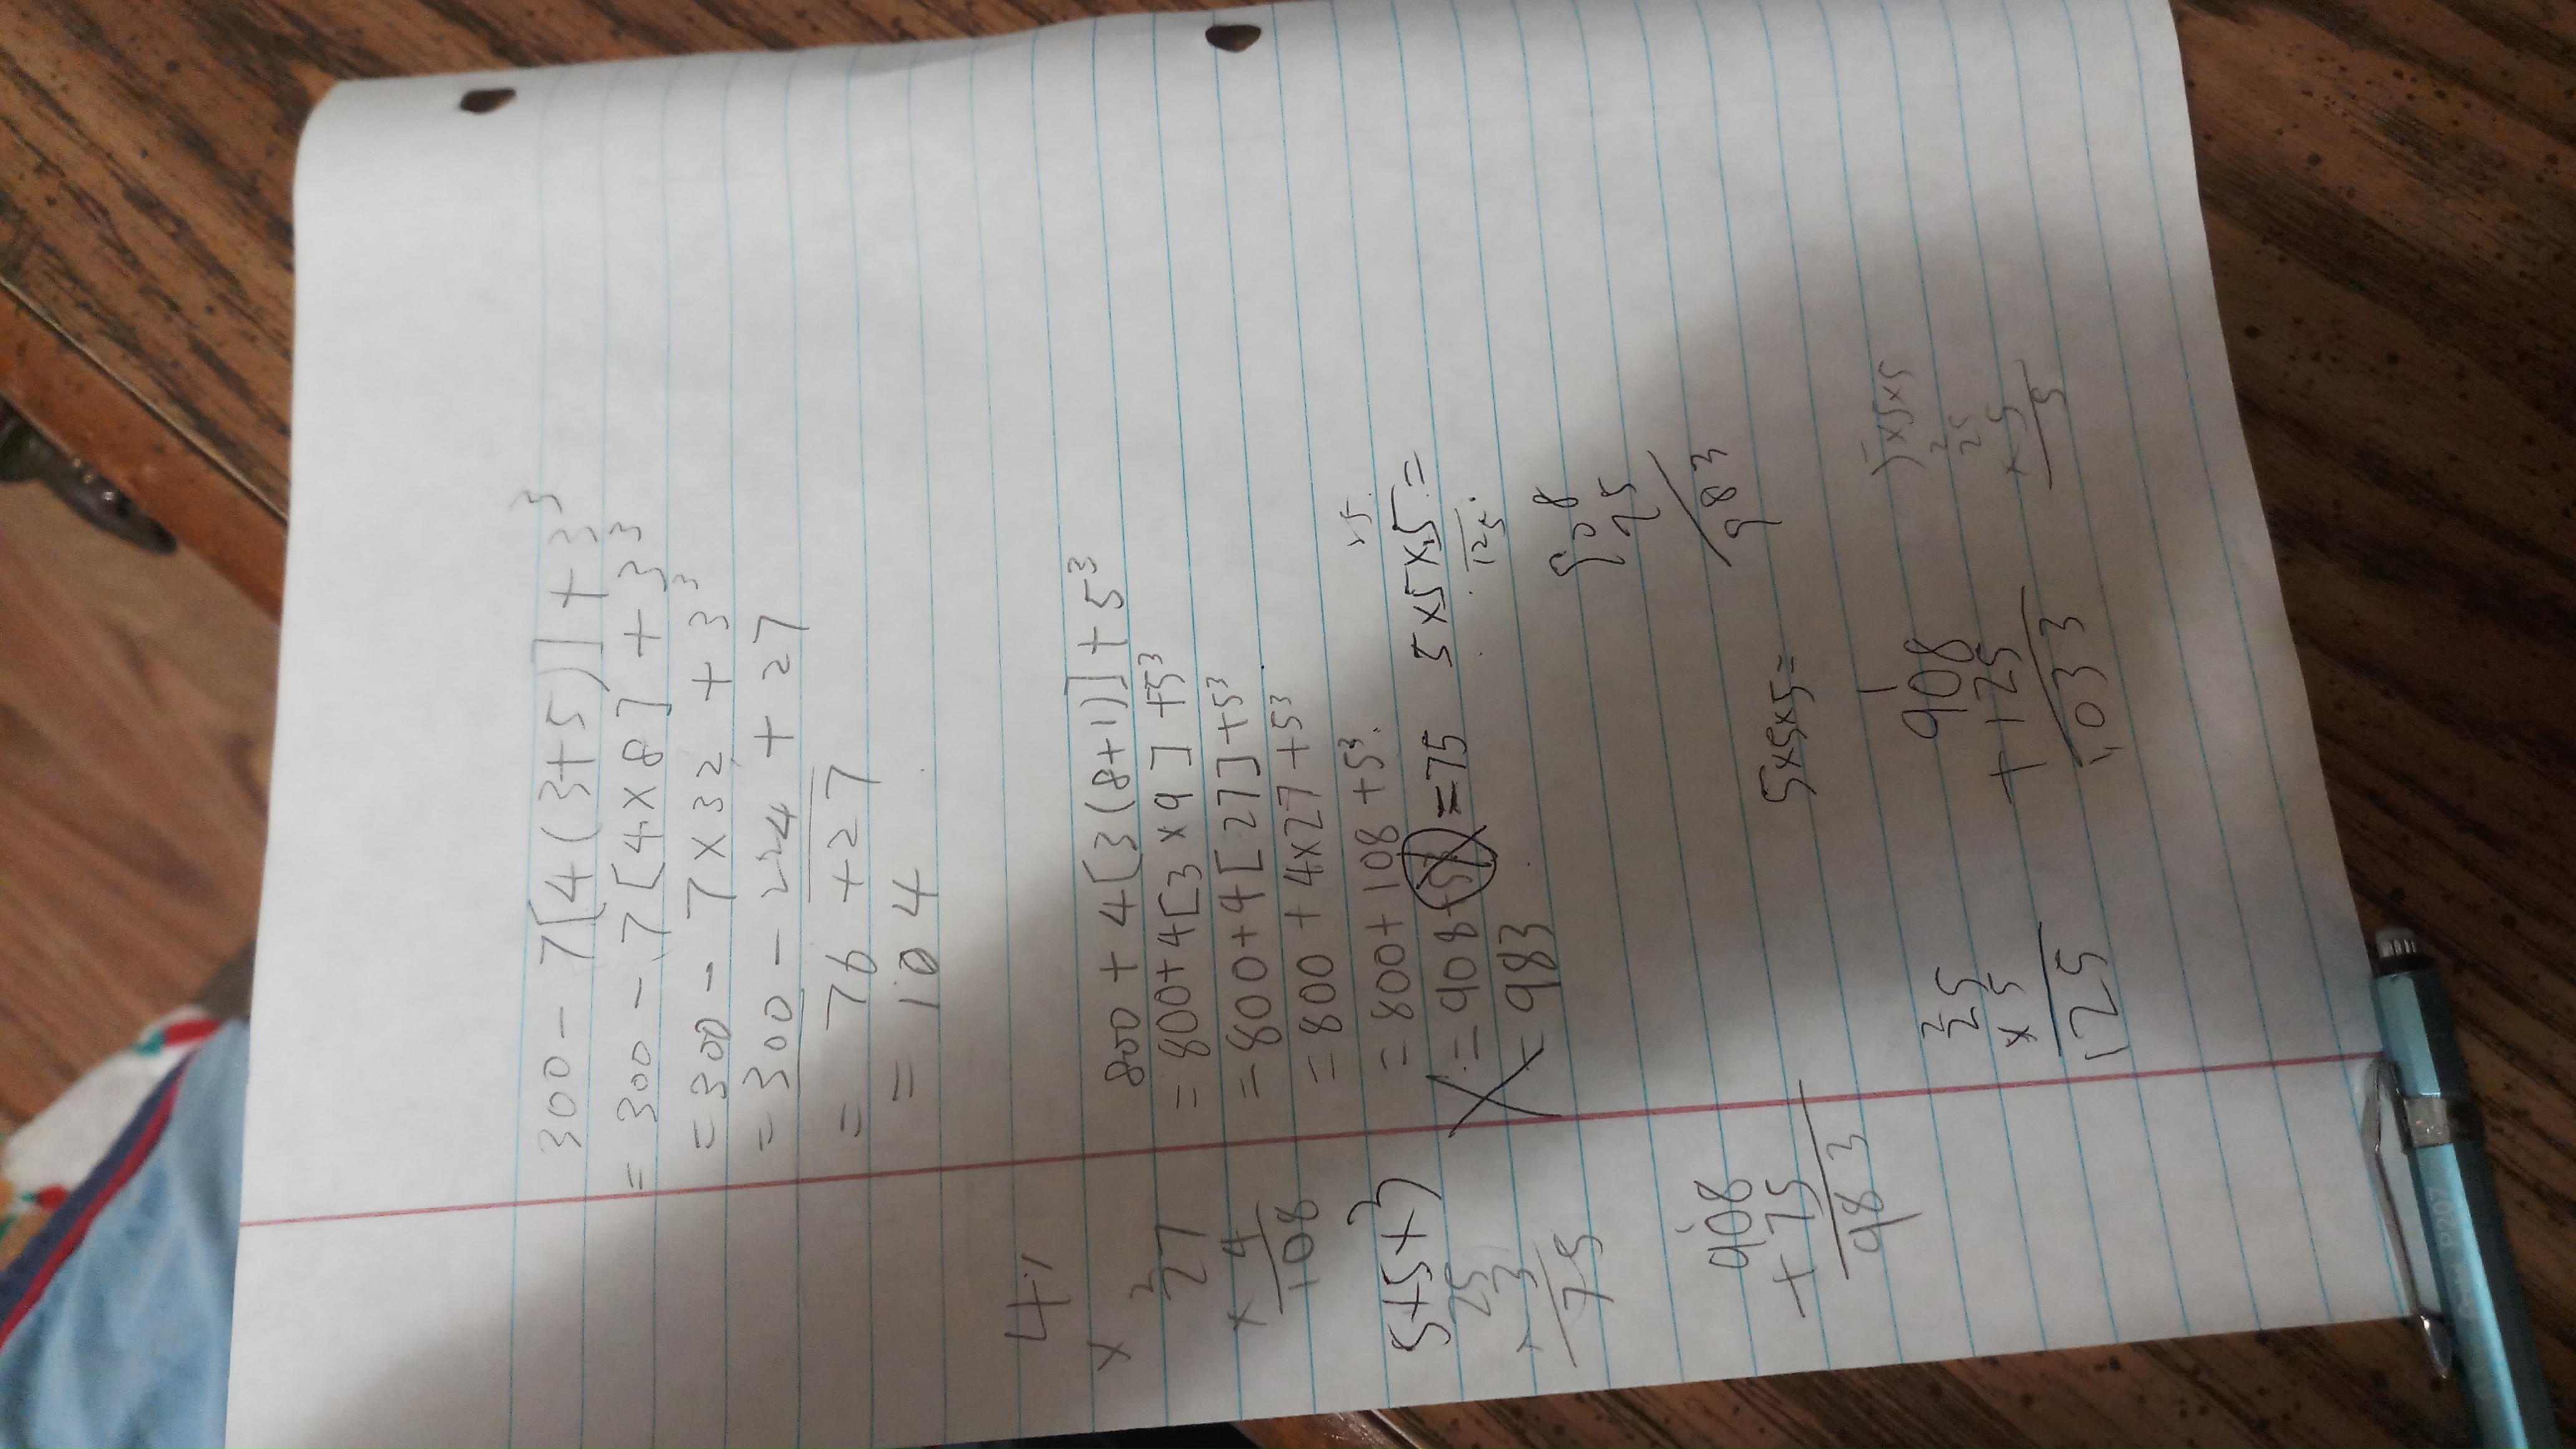 300 - 7[4(3+5)] + 3³
= 300 - 7[4×8] + 3³
= 300 - 7×32 + 3³
= 300 - 224 + 27
= 76 + 27
= 104
800 + 4[3(8+1)] + 5³
= 800+4[3×9] +5³
= 800+4[27]+5³
= 800 + 4×27 +5³
= 800+108 +5³
= 908+5³ =75 5×5×5=
125
= 983
27
× 4
108
5×5×3
25
3
75
908
75
983
908
+75
983
5×5×5=
2
25
×5
125
1
908
+125
1033
5×5×5
2
25
×5
5
P207